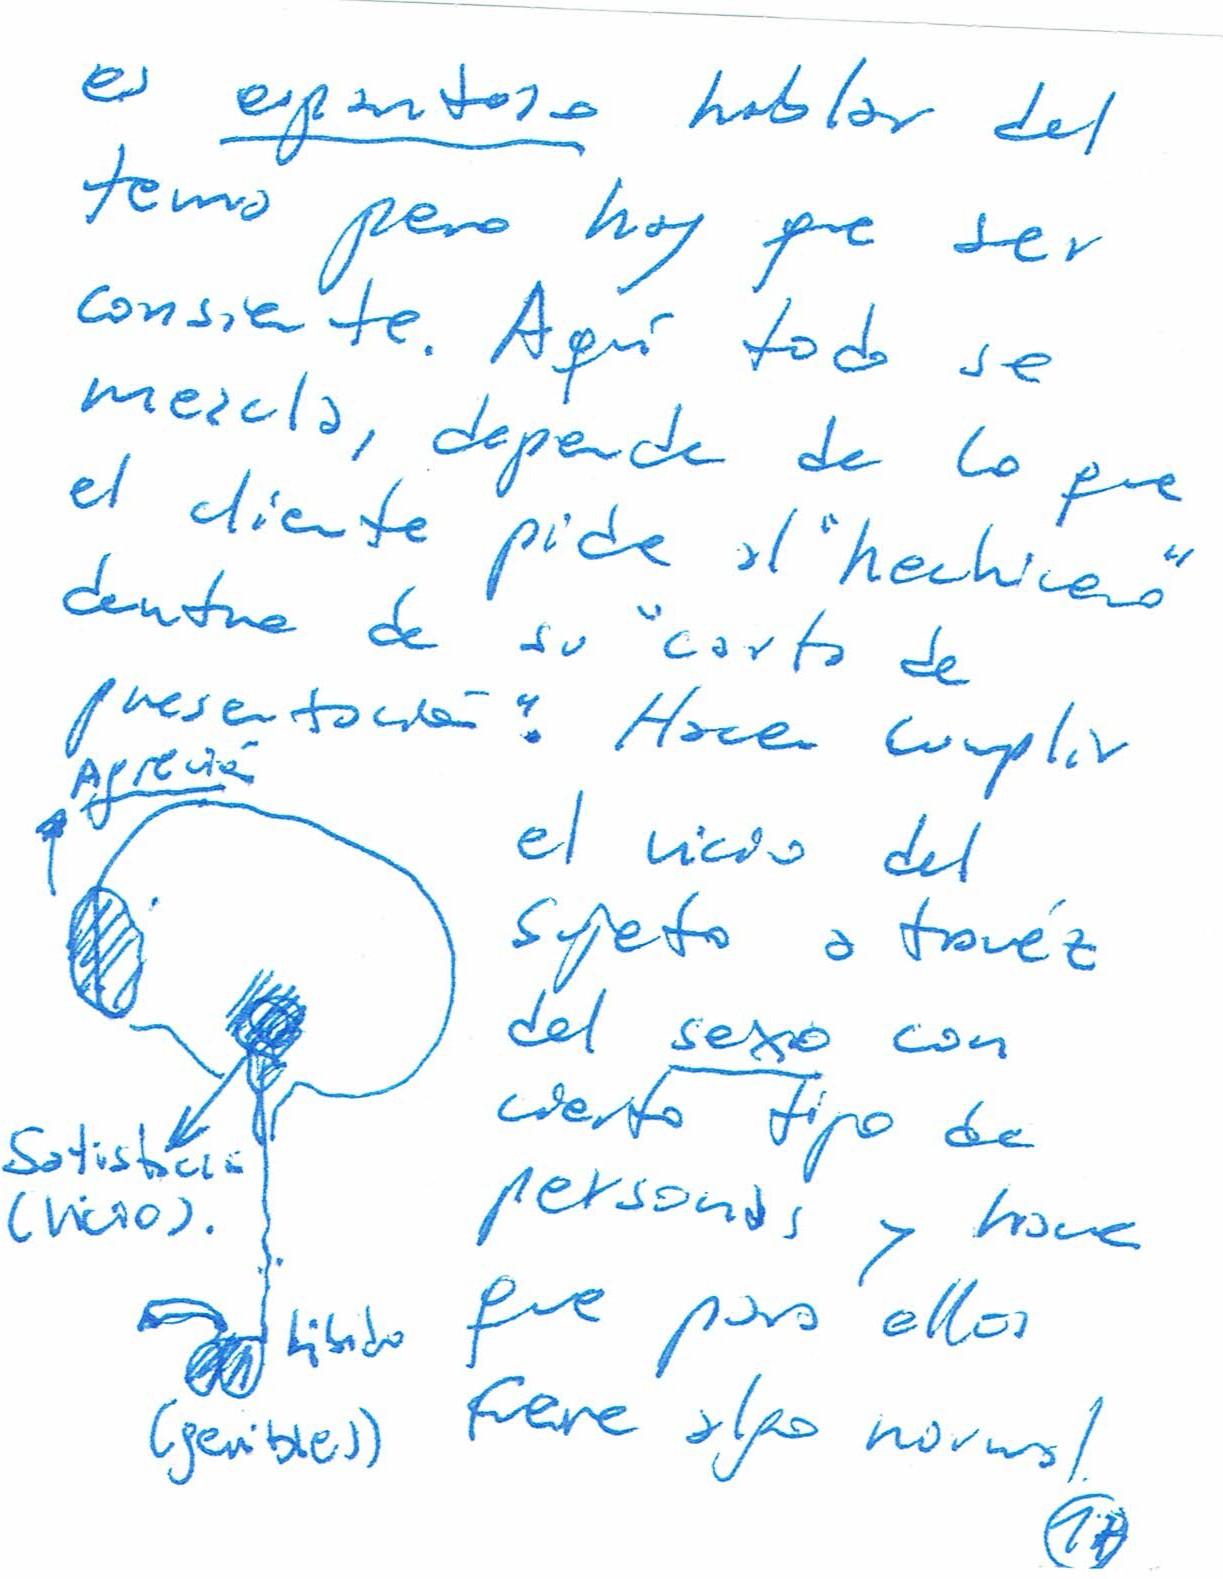 es espantoso hablar del
tema pero hay que ser
consiente. Aquí todo se
mezcla, depende de lo que
el cliente pide al "hechicero"
dentro de su "carta de
presentación". Hacen cumplir
Agreción
el vicio del
sujeto a travéz
del sexo con
cierto tipo de
personas y hace
que para ellos
fuere algo normal.
Satisfacción
(vicio).
Libido
(genitales)
17